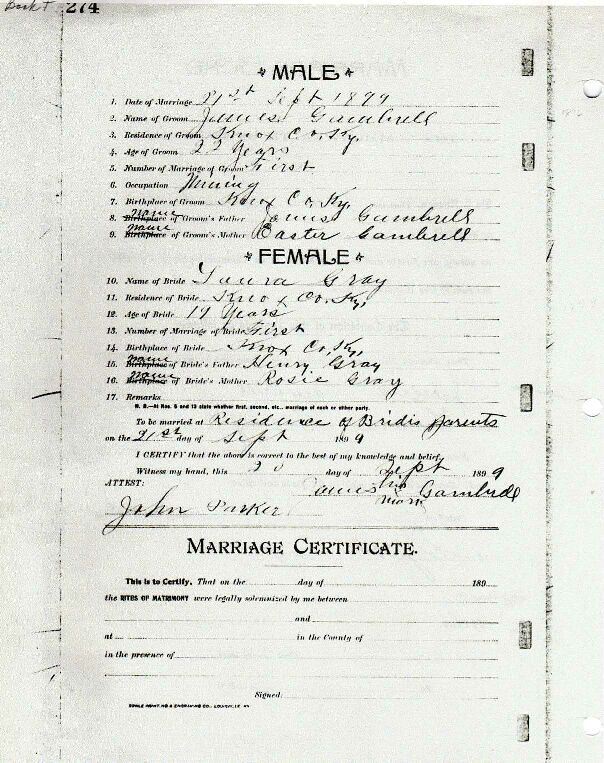 Book T 274
MALE
1. Date of Marriage 21st Sept 1899
2. Name of Groom James Gambrell
3. Residence of Groom Knox Co, Ky.
4. Age of Groom 22 Years
5. Number of Marriage of Groom First
6. Occupation Mining
7. Birthplace of Groom Knox Co, Ky,
8. Birthplace name of Groom's Father James Gambrell
9. Birthplace name of Groom's Mother Easter Gambrell
FEMALE
10. Name of Bride Laura Gray
11. Residence of Bride Knox Co, Ky,
12. Age of Bride 19 Years
13. Number of Marriage of Bride First
14. Birthplace of Bride Knox Co, Ky,
15. Birthplace name of Bride's Father Henry Gray
16. Birthplace name of Bride's Mother Rosie Gray
17. Remarks
N. B.—At Nos. 5 and 13 state whether first, second, etc., marriage of each or either party.
To be married at Residence of Brides parents
on the 21st day of Sept 1899
I CERTIFY that the above is correct to the best of my knowledge and belief.
Witness my hand, this 20 day of Sept 1899
ATTEST: James his mark Gambrell
John Parker
MARRIAGE CERTIFICATE.
This is to Certify, That on the day of 189
the RITES OF MATRIMONY were legally solemnized by me between
and
at in the County of
in the presence of
Signed:
PRINTING & ENGRAVING CO., LOUISVILLE, KY.